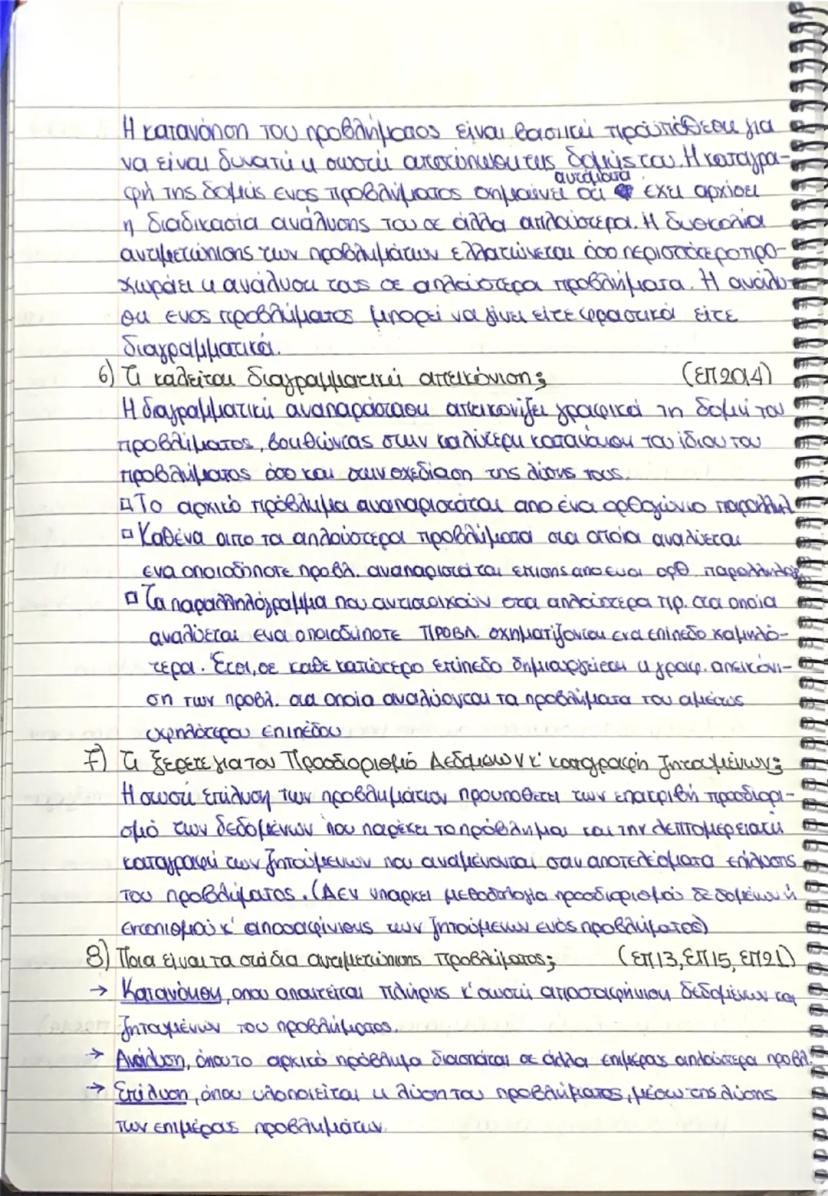 Η κατανόηση του προβλήματος είναι βασική προϋπόθεση για
να είναι δυνατή η σωστή αποτύπωση της δομής του. Η καταγρα-
αυτόματα
φή της δομής ενός προβλήματος σημαίνει ότι έχει αρχίσει
η διαδικασία ανάλυσης του σε άλλα απλούστερα. Η δυσκολία
αντιμετώπισης των προβλημάτων ελλατώνεται όσο περισσότερο προ-
χωράει η ανάλυση τους σε απλούστερα προβλήματα. Η ανάλυ-
ση ενός προβλήματος μπορεί να γίνει είτε φραστικά είτε
διαγραμματικά.
6) Τι καλείται διαγραμματική απεικόνιση; (ΕΠ2014)
Η διαγραμματική αναπαράσταση απεικονίζει γραφικά τη δομή του
προβλήματος, βοηθώντας στην καλύτερη κατανόηση του ίδιου του
προβλήματος όσο και στην σχεδίαση της λύσης τους.
□ Το αρχικό πρόβλημα αναπαριστάται απο ένα ορθογώνιο παραλληλ.
□ Καθένα απο τα απλούστερα προβλήματα στα οποία αναλύεται
ενα οποιοδήποτε προβλ. αναπαρισταται επισης απο ενα ορθ. παραλληλόγ
□ Τα παραλληλόγραμμα που αντιστοιχούν στα απλούστερα πρ. στα οποία
αναλύεται ενα οποιοδήποτε προβλ σχηματίζονται ενα επίπεδο χαμηλό-
τερα. Έτσι, σε κάθε κατώτερο επίπεδο δημιουργείται η γραφ. απεικόνι-
ση των προβλ. στα οποία αναλύονται τα προβλήματα του αμέσως
υψηλότερου επιπέδου
7) Τι ξερετε για τον Προσδιορισμό Δεδομένων κ' καταγραφή ζητουμένων;
Η σωστή επίλυση των προβλημάτων προυποθετει των επακριβή προσδιορι-
σμό των δεδομένων που παρέχει το πρόβλημα και την λεπτομερειακή
καταγραφή των ζητούμενων που αναμένονται σαν αποτελέσματα επίλυσης
του προβλήματος. (Δεν υπαρχει μεθοδολογία προσδιορισμού δεδομένων ή
εντοπισμού κ' αποσαφίνισης των ζητούμενων ενός προβλήματος)
8) Ποια είναι τα στάδια αντιμετώπισης προβλήματος; (ΕΠ13, ΕΠ15, ΕΠ21)
→ Κατανόηση, οπου απαιτείται πλήρης κ' σωστή αποσαφήνιση δεδομένων και
ζητουμένων του προβλήματος.
→ Ανάλυση, όπου το αρχικό πρόβλημα διασπάται σε άλλα επιμέρας απλούστερα προβλ.
→ Επίλυση, όπου υλοποιείται η λύση του προβλήματος, μέσω της λύσης
των επιμέρας προβλημάτων.